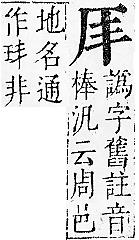 譌字舊註音
棒汎云周邑
地名通
作玤非